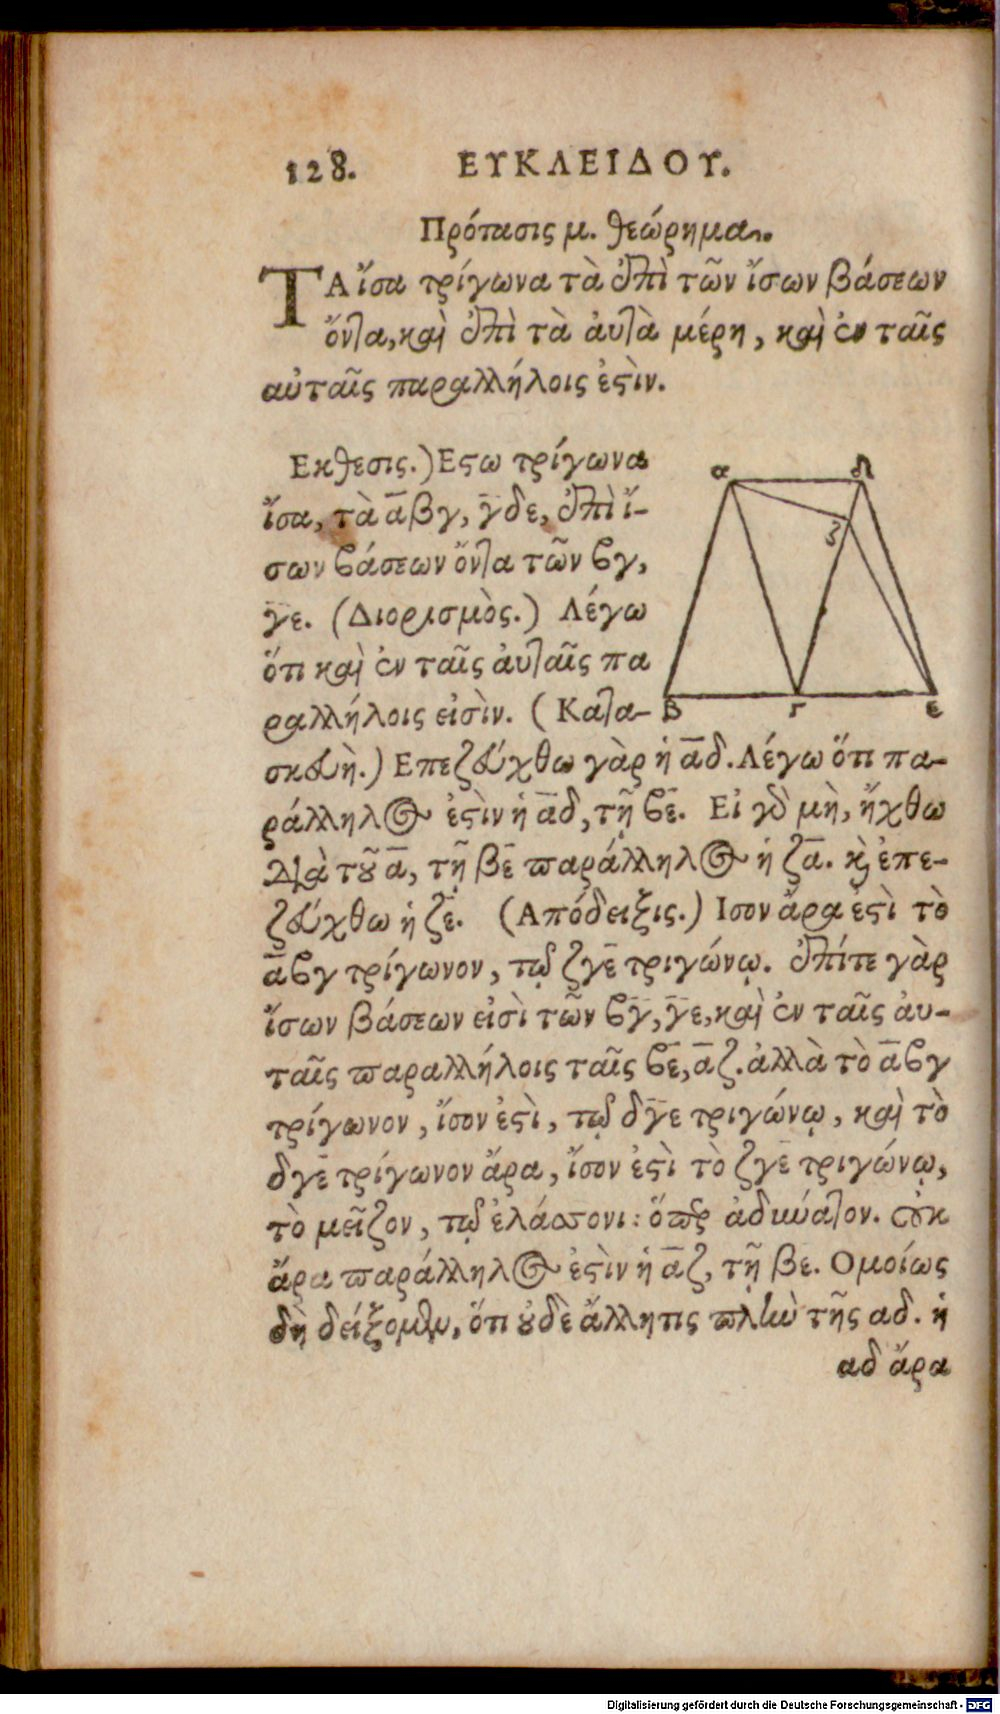 128. ΕΥΚΛΕΙΔΟΥ.
Πρότασις μ. θεώρημα.
ΤΑ ἴσα τρίγωνα τὰ ἐπὶ τῶν ἴσων βάσεων
ὄντα, καὶ ἐπὶ τὰ ἀυτὰ μέρη, καὶ ἐν ταῖς
αὐταῖς παραλλήλοις ἐστὶν.
Εκθεσις.) Εστω τρίγωνα
ἴσα, τὰ α̅βγ, γ̅δε, ἐπὶ ἴ-
σων βάσεων ὄντα τῶν βγ,
γ̅ε. (Διορισμὸς.) Λέγω
ὅτι καὶ ἐν ταῖς ἀυταῖς πα
ραλλήλοις εἰσὶν. (Κατα-
σκευὴ.) Επεζεύχθω γὰρ ἡ α̅δ. Λέγω ὅτι πα-
ράλληλος ἐστὶν ἡ α̅δ, τῇ βε̅. Εἰ γὰρ μὴ, ἤχθω
διὰ τοῦ α̅, τῇ βε̅ παράλληλος ἡ ζα̅. καὶ ἐπε-
ζεύχθω ἡ ζε̅. (Απόδειξις.) Ισον ἄρα ἐστὶ τὸ
α̅βγ τρίγωνον, τῷ ζγε̅ τριγώνῳ. ἐπίτε γὰρ
ἴσων βάσεων εἰσὶ τῶν βγ̅, γ̅ε, καὶ ἐν ταῖς ἀυ-
ταῖς παραλλήλοις ταῖς βε̅, α̅ζ. ἀλλὰ τὸ α̅βγ
τρίγωνον, ἴσον ἐστὶ, τῷ δγ̅ε τριγώνῳ, καὶ τὸ
δγε̅ τρίγωνον ἄρα, ἴσον ἐστὶ τὸ ζγε̅ τριγώνῳ,
τὸ μεῖζον, τῷ ἐλάσσονι: ὅπερ ἀδύνατον. οὐκ
ἄρα παράλληλος ἐστὶν ἡ α̅ζ, τῇ βε. Ομοίως
δὴ δείξομεν, ὅτι οὐδὲ ἄλλη τις πλὴν τῆς αδ. ἡ
αδ ἄρα
α δ
ζ
Β Γ Ε
Digitalisierung gefördert durch die Deutsche Forschungsgemeinschaft - DFG